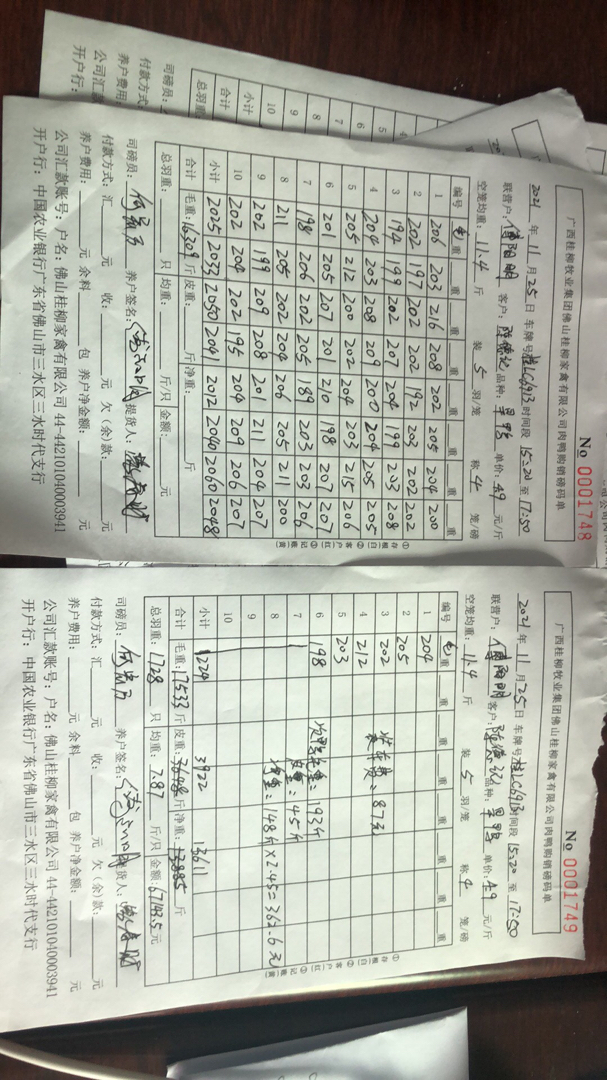 广西桂柳牧业集团佛山桂柳家禽有限公司肉鸭购销磅码单
No 0001748
2021 年 11 月 25 日 车牌号 桂LC6913 时间段 15:20 至 17:50
联营户: 客户: 品种: 单价: 4.9 元/斤
空笼均重: 11.4 斤 装 5 羽/笼 称 4 笼/磅
编号 毛重 重 重 重 重 重 重 重
1 206 203 216 208 202 205 204 200
2 202 197 202 202 192 203 202 202
3 194 199 202 207 204 199 203 208
4 204 203 208 209 200 204 205 205
5 205 212 200 202 204 203 215 206
6 201 205 207 201 210 198 207 207
7 198 206 202 205 189 203 203 206
8 211 205 202 204 206 205 211 200
9 202 199 209 208 201 211 204 207
10 202 204 202 195 204 209 206 207
小计 2025 2033 2050 2041 2012 2040 2060 2048
合计 毛重: 16309 斤 皮重: 斤 净重: 斤
总羽重: 只 均重: 斤/只 金额: 元
司磅员: 养户签名: 提货人:
付款方式: 汇 元 收: 元 欠(余)款: 元
养户费用: 元 余料 包 养户净金额: 元
公司汇款账号: 户名: 佛山桂柳家禽有限公司 44-442101040003941
开户行: 中国农业银行广东省佛山市三水区三水时代支行
①存根(白) ②客户(红) ③记账(黄)
广西桂柳牧业集团佛山桂柳家禽有限公司肉鸭购销磅码单
No 0001749
2021 年 11 月 25 日 车牌号 桂LC6913 时间段 15:20 至 17:50
联营户: 客户: 品种: 单价: 4.9 元/斤
空笼均重: 11.4 斤 装 5 羽/笼 称 4 笼/磅
编号 毛重 重 重 重 重 重 重 重
1 204
2 205
3 202
4 212 =87只
5 203
6 198 =193斤
7 =45斤
8 净重=148斤×2.45=362.6元
9
10
小计 1224 3922 13611
合计 毛重: 17533 斤 皮重: 3648 斤 净重: 13885 斤
总羽重: 1728 只 均重: 7.87 斤/只 金额: 67143.5 元
司磅员: 养户签名: 提货人:
付款方式: 汇 元 收: 元 欠(余)款: 元
养户费用: 元 余料 包 养户净金额: 元
公司汇款账号: 户名: 佛山桂柳家禽有限公司 44-442101040003941
开户行: 中国农业银行广东省佛山市三水区三水时代支行
①存根(白) ②客户(红) ③记账(黄)
司磅员:
付款方式
养户费用:
公司汇款
开户行:
总羽重
合计
小计
10
9
8
7
6
5